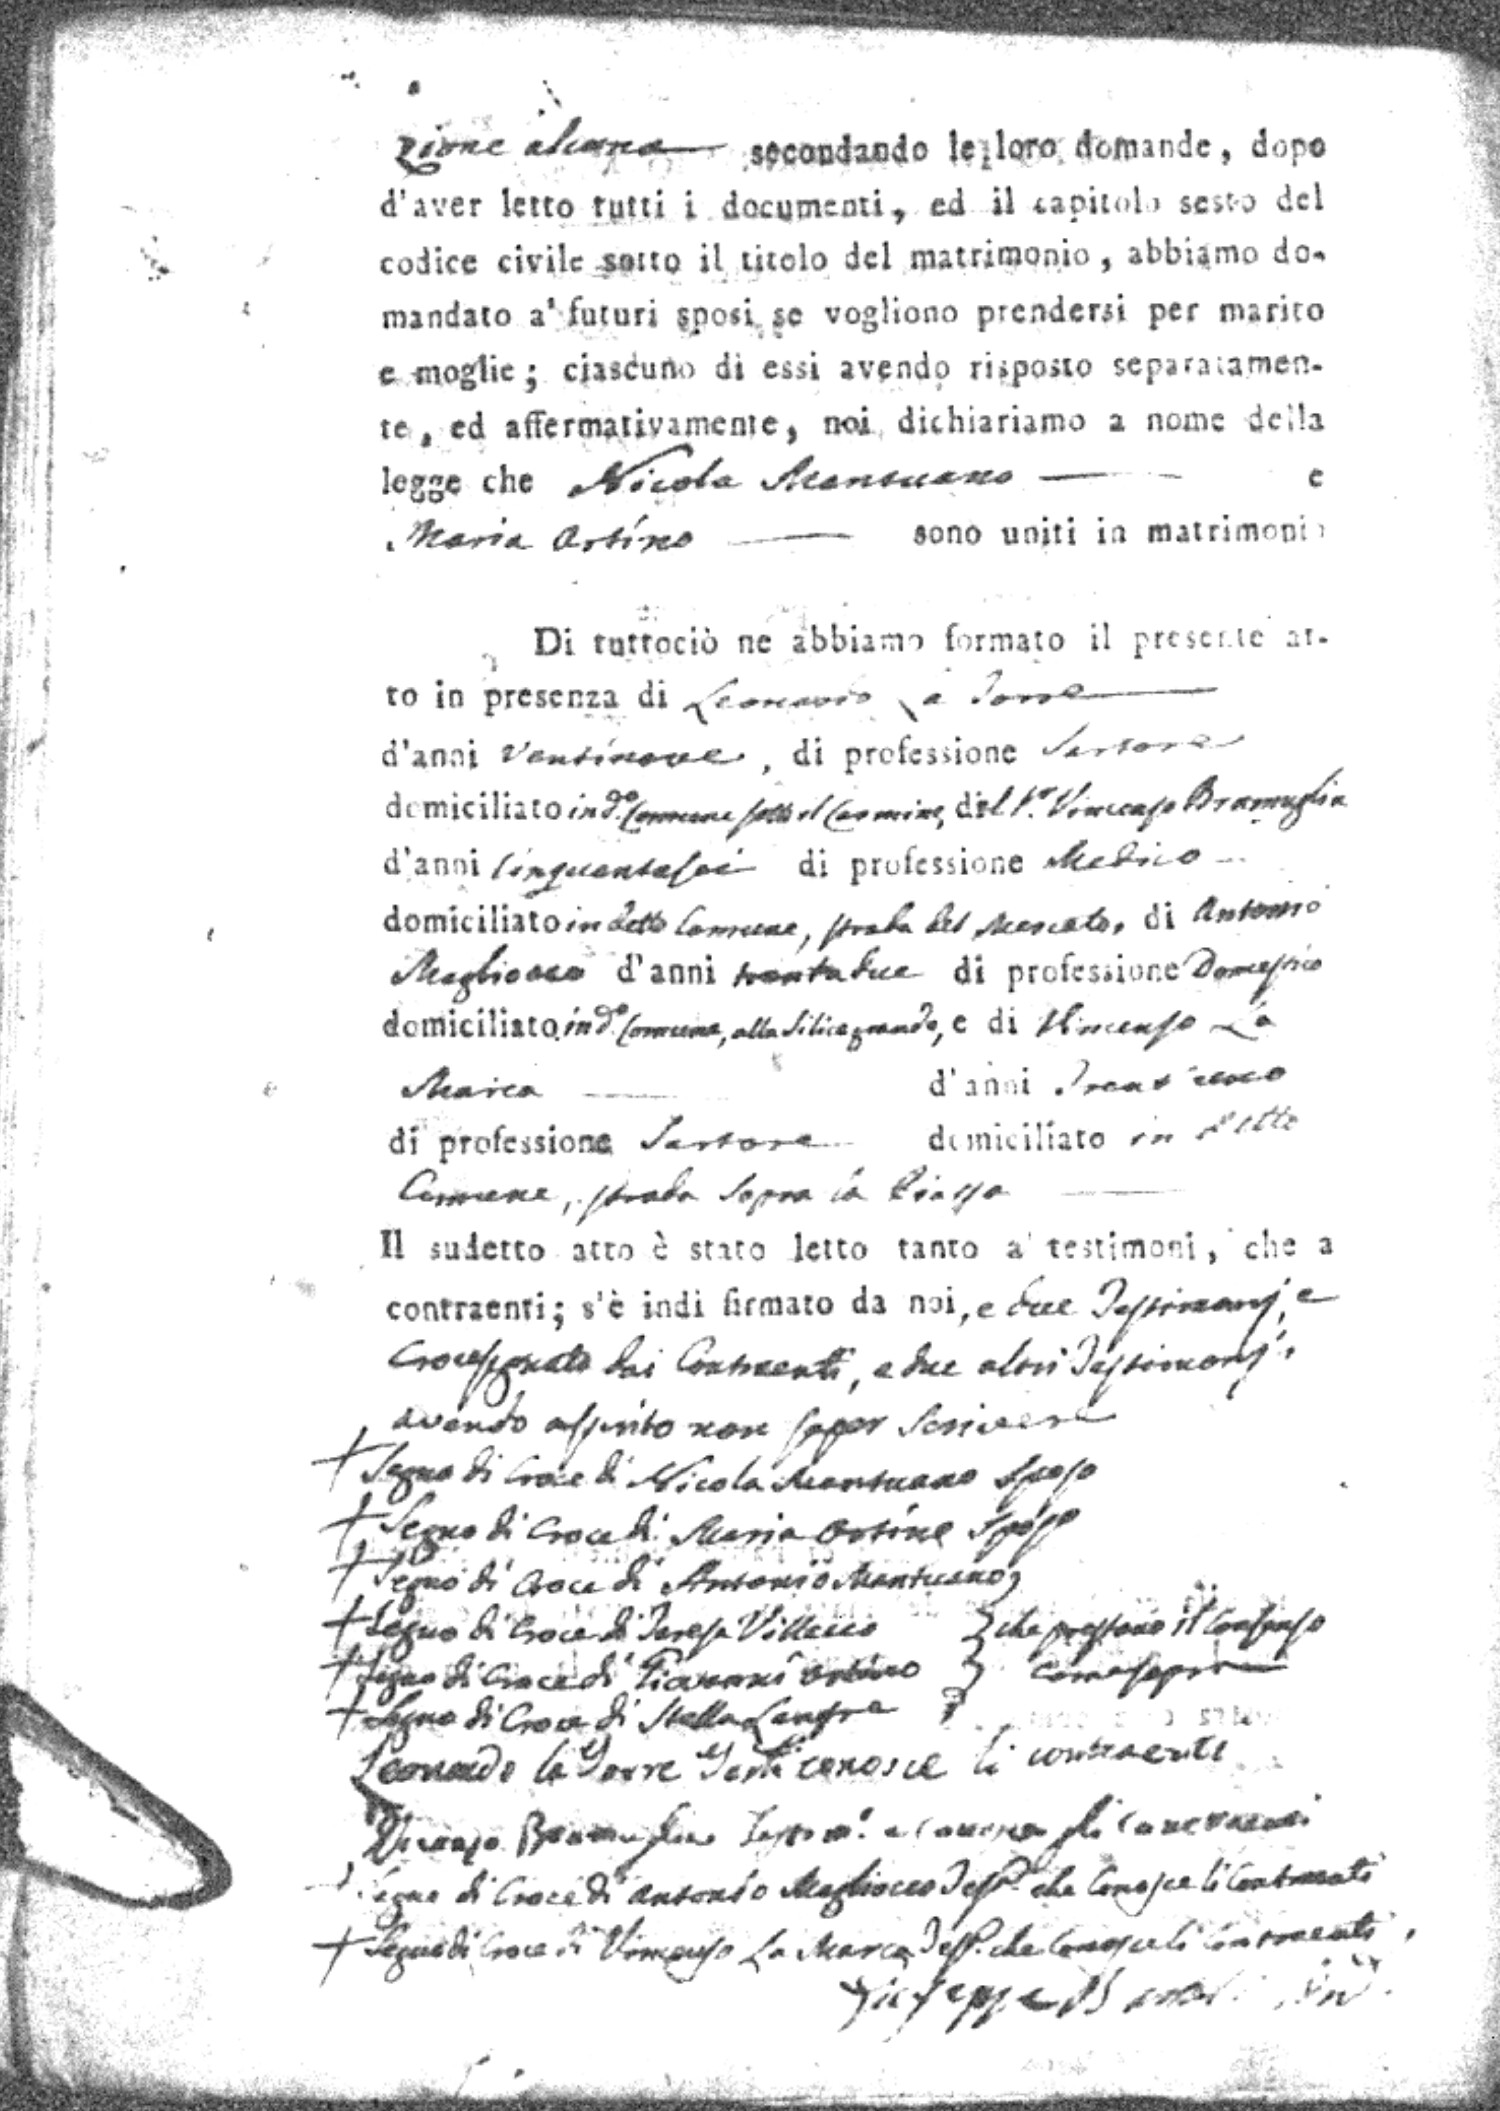 zione alcuna secondando le loro domande, dopo
d'aver letto tutti i documenti, ed il capitolo sesto del
codice civile sotto il titolo del matrimonio, abbiamo do-
mandato a' futuri sposi se vogliono prendersi per marito
e moglie; ciascuno di essi avendo risposto separatamen-
te, ed affermativamente, noi dichiariamo a nome della
legge che Nicola Mantuano e
Maria Ortino sono uniti in matrimonio
Di tuttociò ne abbiamo formato il presente at-
to in presenza di Leonardo La Torre
d'anni Ventinove, di professione Sartore
domiciliato in d.º Comune sotto il Carmine, di Vincenzo Bramuglia
d'anni Cinquantasei di professione Medico
domiciliato in detto Comune, strada del Mercato, di Antonio
Magliocco d'anni trentadue di professione Domestico
domiciliato in d.º Comune, alla Silica grande, e di Vincenzo La
Marca d'anni Trent'uno
di professione Sartore domiciliato in detto
Comune, strada Sopra la Piazza
Il sudetto atto è stato letto tanto a' testimoni, che a
contraenti; s'è indi firmato da noi, e due Testimonj, e
Crocesegnato dai Contraenti, e due altri Testimonj,
avendo asserito non saper Scrivere
+ Segno di Croce di Nicola Mantuano Sposo
+ Segno di Croce di Maria Ortino Sposa
+ Segno di Croce di Antonio Mantuano
+ Segno di Croce di Teresa Villacco } che prestano il Consenso
+ Segno di Croce di Giovanni Ortino } come sopra
+ Segno di Croce di Stella
Leonardo la Torre Test: conosce li contraenti
Vicenzo Bramuglia Testim.º e conosce gli contraenti
Segno di Croce di Antonio Magliocco Test.º che Conosce li Contraenti
+ Segno di Croce di Vincenzo La Marca Test.º che Conosce li Contraenti
Giuseppe